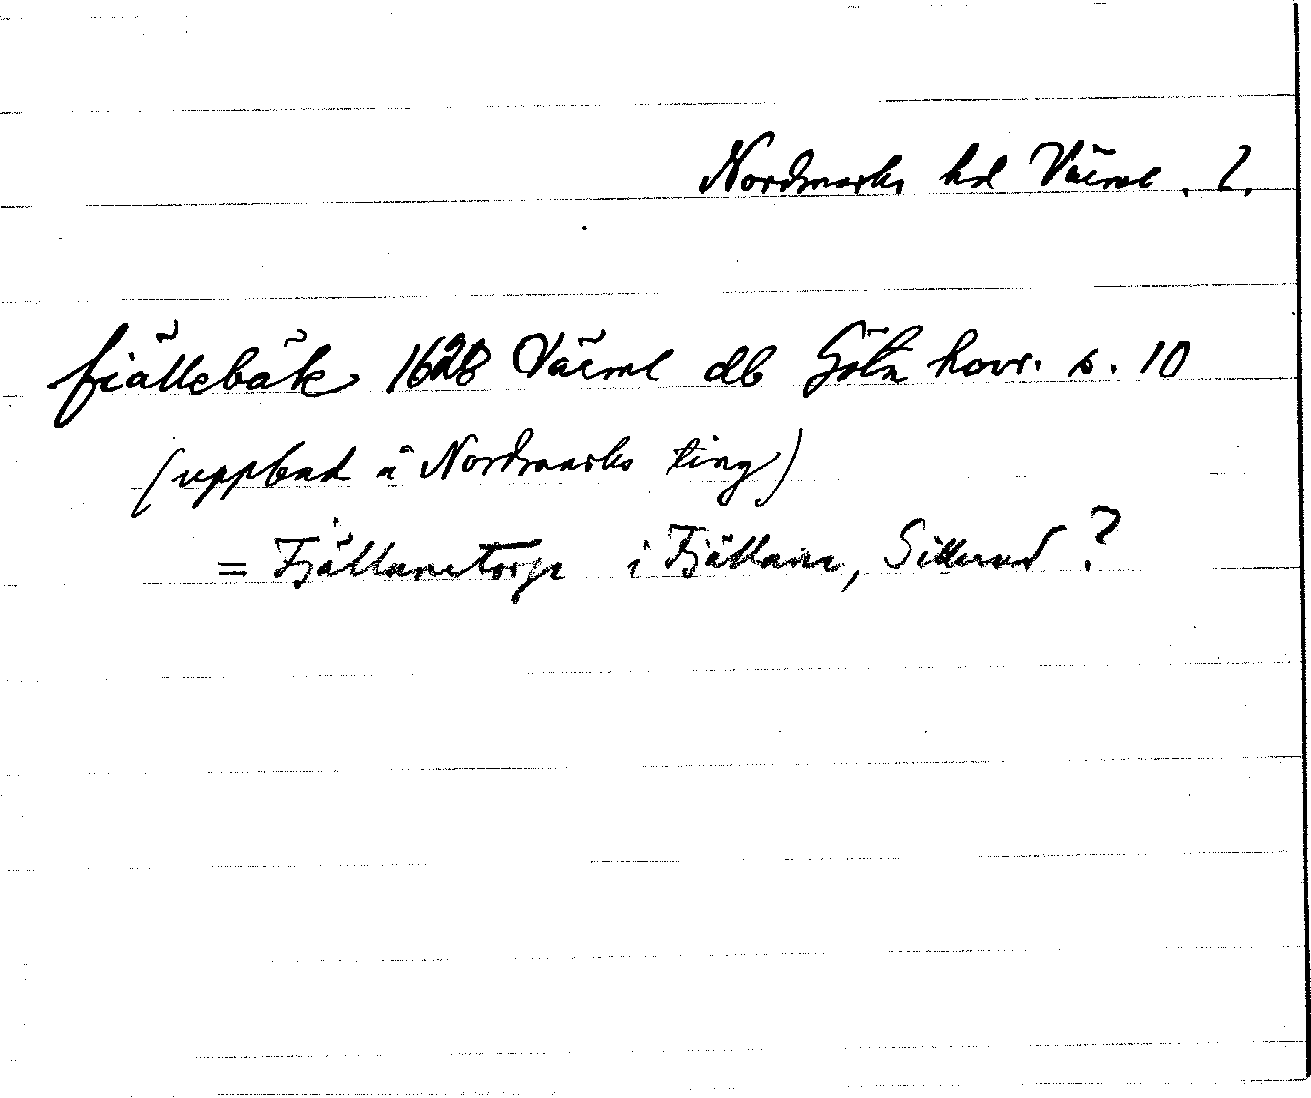 Nordmarks hd Värml. ?.
fiällebäk 1628 Värml db Göta hovr. s. 10
(uppbud å Nordmarks ting)
= Fjällanetorp i Fjällane, Sillerud ?